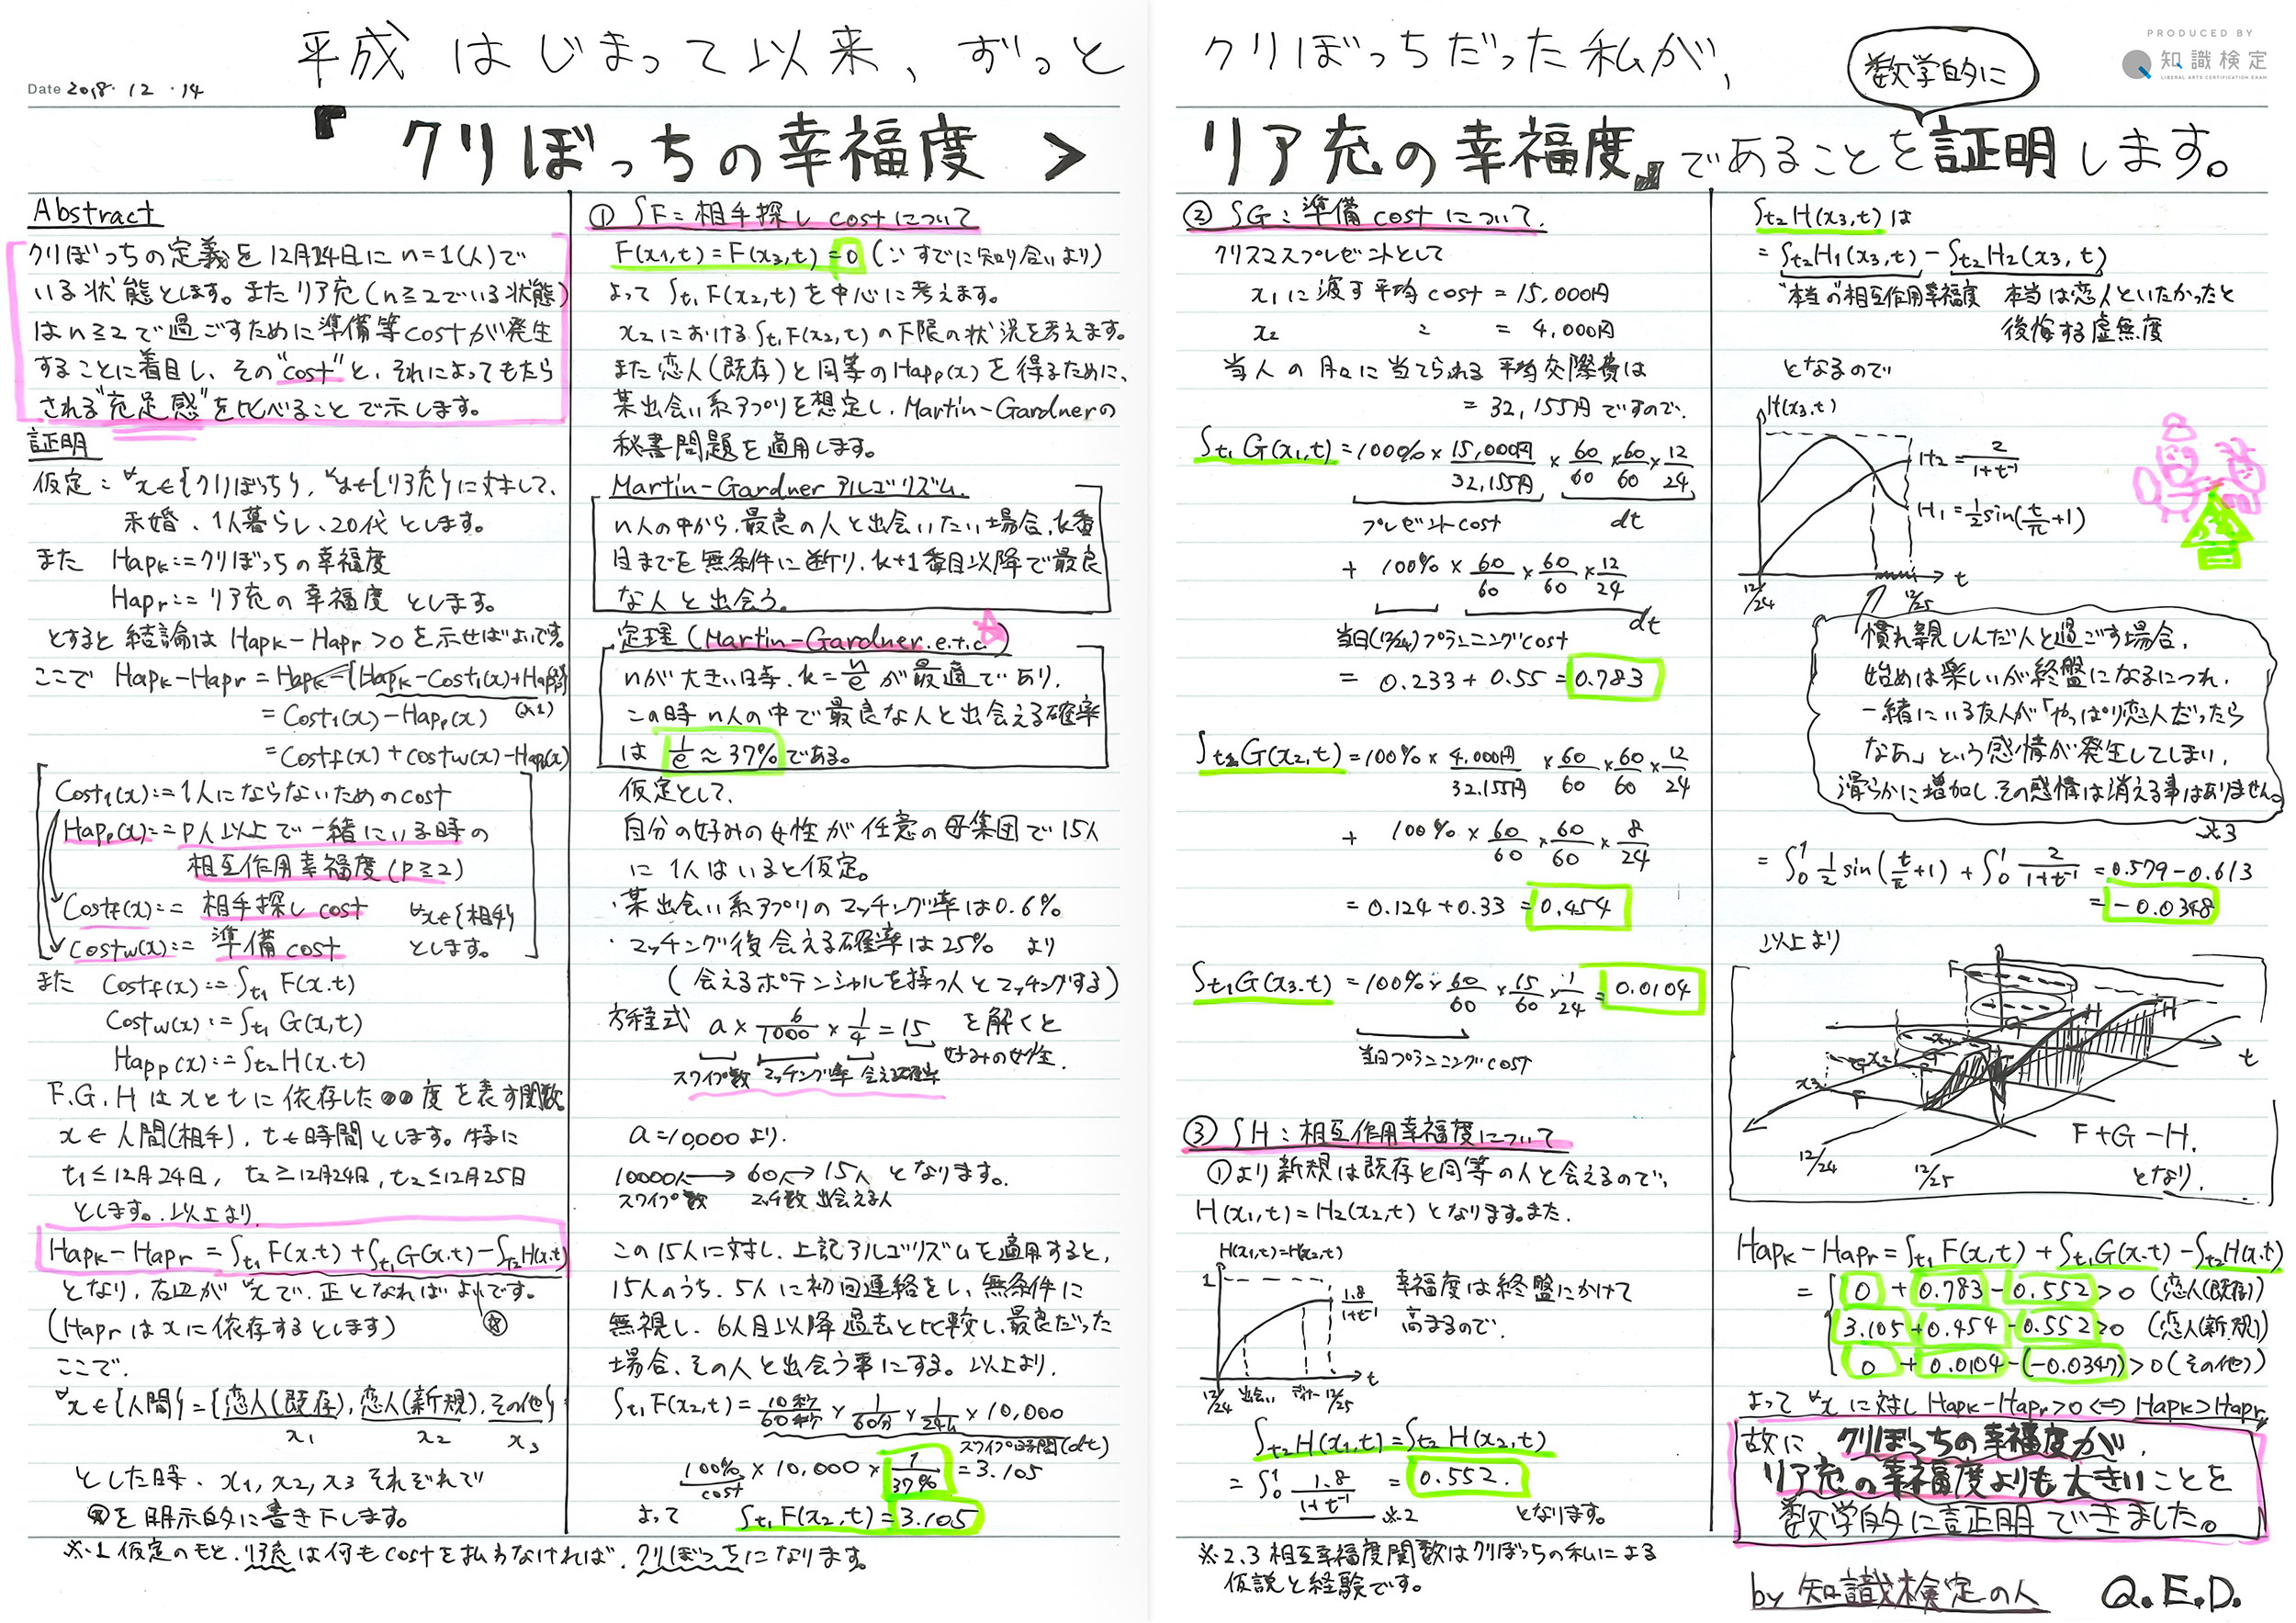 Date 2018・12・14
平成はじまって以来、ずっとクリぼっちだった私が、
数学的に
PRODUCED BY
知識検定
LIBERAL ARTS CERTIFICATION EXAM
『クリぼっちの幸福度 > リア充の幸福度』であることを証明します。
Abstract
クリぼっちの定義を12月24日にn=1(人)で
いる状態とします。またリア充(n≧2でいる状態)
はn≧2で過ごすために準備等costが発生
することに着目し、その"cost"と、それによってもたら
される"充足感"を比べることで示します。
証明
仮定:∀x∈{クリぼっち}, ∀y∈{リア充}に対して、
未婚、1人暮らし、20代とします。
また Hapk:=クリぼっちの幸福度
Hapr:=リア充の幸福度 とします。
とすると結論は Hapk-Hapr>0を示せばよいです。
ここで Hapk-Hapr=Hapk-{Hapk-Cost1(x)+Happ(x)}
=Cost1(x)-Happ(x) (※1)
=Costf(x)+costw(x)-Happ(x)
Cost1(x):=1人にならないためのcost
Happ(x):=P人以上で一緒にいる時の
相互作用幸福度(P≧2)
Costf(x):= 相手探しcost ∀x∈{相手}
Costw(x):= 準備cost とします。
また Costf(x):=∫t1 F(x.t)
Costw(x):=∫t1 G(x,t)
Happ(x):=∫t2 H(x.t)
F.G.Hはxとtに依存した●●度を表す関数。
x∈人間(相手), t∈時間とします。特に
t1≦12月24日, t2≧12月24日, t2≦12月25日
とします。以上より
Hapk-Hapr=∫t1 F(x.t)+∫t1 G(x.t)-∫t2 H(x.t)
となり、右辺が∀xで、正となればよいです。
(Haprはxに依存するとします) ☆
ここで.
∀x∈{人間}={恋人(既存), 恋人(新規), その他}
x1 x2 x3
とした時、x1,x2,x3それぞれで
☆を明示的に書き下します。
※1 仮定のもと、リア充は何もcostを払わなければ、クリぼっちになります。
① ∫F:相手探しcostについて
F(x1,t)=F(x3,t)=0 (∵すでに知り合いより)
よって∫t1 F(x2,t)を中心に考えます。
x2における∫t1 F(x2,t)の下限の状況を考えます。
また恋人(既存)と同等のHapp(x)を得るために、
某出会い系アプリを想定し、Martin-Gardnerの
秘書問題を適用します。
Martin-Gardnerアルゴリズム.
n人の中から、最良の人と出会いたい場合、k番
目までを無条件に断り、k+1番目以降で最良
な人と出会う。
定理(Martin-Gardner.e.t.c.)
nが大きい時、k=n/eが最適であり、
この時n人の中で最良な人と出会える確率
は 1/e≈37% である。
仮定として、
自分の好みの女性が任意の母集団で15人
に1人はいると仮定。
・某出会い系アプリのマッチング率は0.6%
・マッチング後会える確率は25% より
(会えるポテンシャルを持つ人とマッチングする)
方程式 a×6/1000×1/4=15 を解くと
スワイプ数 マッチング率 会える確率 好みの女性.
a=10,000より.
10000人→60人→15人 となります。
スワイプ数 マッチ数 出会える人
この15人に対し、上記アルゴリズムを適用すると、
15人のうち、5人に初回連絡をし、無条件に
無視し、6人目以降過去と比較し、最良だった
場合、その人と出会う事にする。以上より、
∫t1 F(x2,t)=10秒/60秒×1/60分×1/24h×10,000
スワイプ時間(dt)
100%/cost×10,000×1/37%=3.105
よって ∫t1 F(x2,t)=3.105
② ∫G:準備costについて.
クリスマスプレゼントとして
x1に渡す平均cost=15,000円
x2 〃 =4,000円
当人の月々に当てられる平均交際費は
=32,155円ですので、
∫t1 G(x1,t)=100%×15,000円/32,155円×60/60×60/60×12/24
プレゼントcost dt
+ 100%×60/60×60/60×12/24
当日(12/24)プランニングcost dt
= 0.233+0.55=0.783
∫t1 G(x2,t)=100%×4,000円/32,155円×60/60×60/60×12/24
+ 100%×60/60×60/60×8/24
= 0.124+0.33=0.454
∫t1 G(x3.t)=100%×60/60×15/60×1/24=0.0104
当日プランニングcost
③ ∫H:相互作用幸福度について
①より新規は既存と同等の人と会えるので、
H(x1,t)=H2(x2,t)となります。また.
H(x1,t)=H(x2,t)
1
1.8/1+t⁻¹
t
12/24 出会い ディナー 12/25
幸福度は終盤にかけて
高まるので.
∫t2 H(x1,t)=∫t2 H(x2,t)
=∫₀¹ 1.8/1+t⁻¹ =0.552.
※2 となります。
※2.3 相互幸福度関数はクリぼっちの私による
仮説と経験です。
∫t2 H(x3,t)は
=∫t2 H1(x3,t)-∫t2 H2(x3,t)
"本当の"相互作用幸福度 本当は恋人といたかったと
後悔する虚無度
となるので
H(x3.t)
H2=2/1+t⁻¹
H1=1/2sin(t/π+1)
t
12/24 12/25
慣れ親しんだ人と過ごす場合、
始めは楽しいが終盤になるにつれ、
一緒にいる友人が「やっぱり恋人だったら
なあ」という感情が発生してしまい、
滑らかに増加し、その感情は消える事はありません。
※3
=∫₀¹ 1/2 sin(t/π+1)+∫₀¹ 2/1+t⁻¹=0.579-0.613
=-0.0348
以上より
F
G
H
H
t
x3
x2
12/24
12/25
F+G-H.
となり、
Hapk-Hapr=∫t1 F(x,t)+∫t1 G(x.t)-∫t2 H(x.t)
= 0+0.783-0.552>0 (恋人(既存))
3.105+0.454-0.552>0 (恋人(新規))
0+0.0104-(-0.0347)>0 (その他)
よって∀xに対しHapk-Hapr>0⇔Hapk>Hapr
故に、クリぼっちの幸福度が、
リア充の幸福度よりも大きいことを
数学的に証明できました。
by 知識検定の人 Q.E.D.